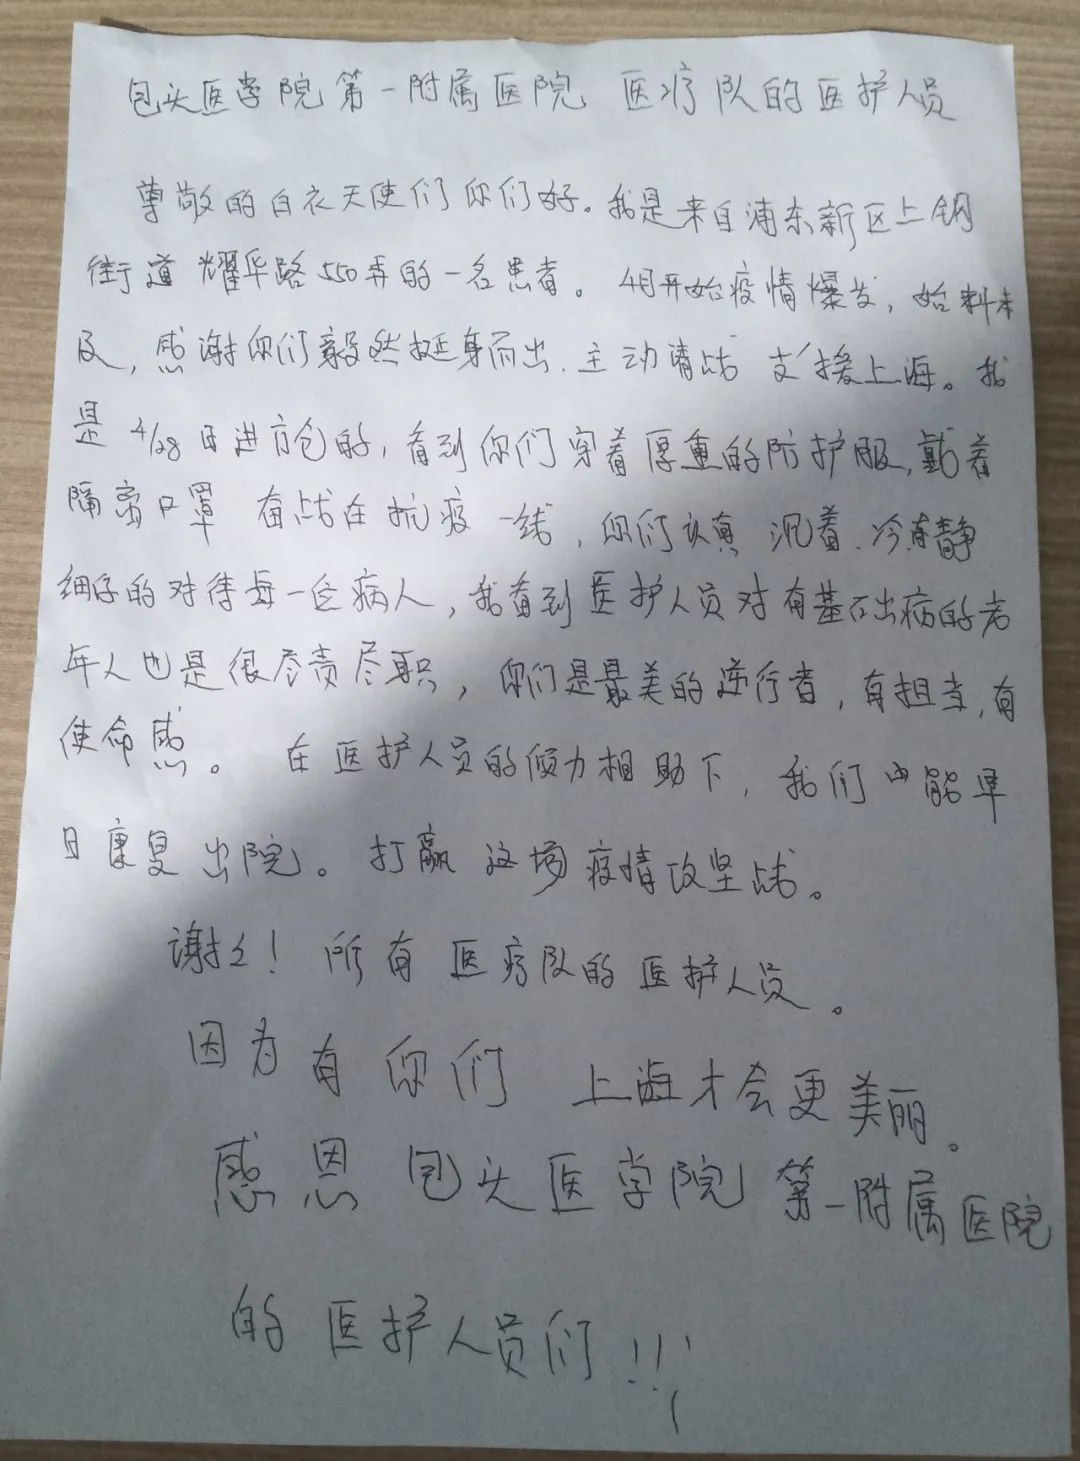 包头医学院第一附属医院 医疗队的医护人员
尊敬的白衣天使们你们好。我是来自浦东新区上钢
街道耀华路550弄的一名患者。4月开始疫情爆发,始料未
及,感谢你们毅然挺身而出、主动请战 支援上海。我
是4/28日进方仓的,看到你们穿着厚重的防护服,戴着
隔离口罩 奋战在抗疫一线,你们认真 沉着、冷静
细仔的对待每一位病人,我看到医护人员对有基础病的老
年人也是很尽责尽职,你们是最美的逆行者,有担当,有
使命感。 在医护人员的倾力相助下,我们也能早
日康复出院。打赢这场疫情攻坚战。
谢谢!所有医疗队的医护人员。
因为有你们 上海才会更美丽。
感恩 包头医学院第一附属医院
的医护人员们!!!